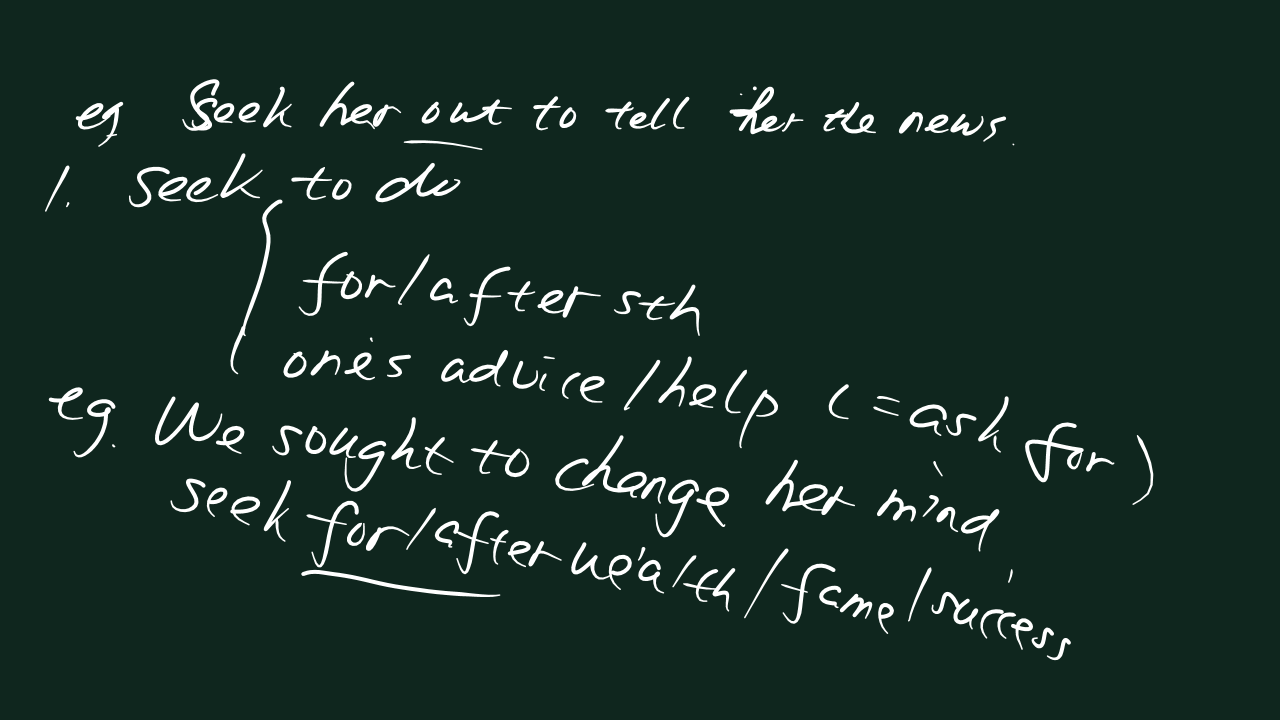 eg Seek her out to tell her the news.
1. seek to do
for/after sth
one's advice/help (=ask for)
eg. We sought to change her mind
seek for/after wealth/fame/success